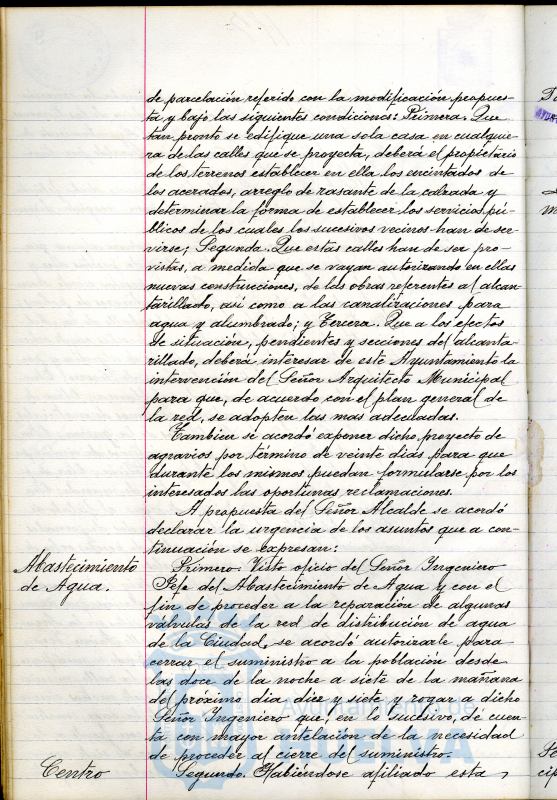 de parcelación referido con la modificación propues-
ta y bajo las siguientes condiciones: Primera. Que
tan pronto se edifique una sola casa en cualquie-
ra de las calles que se proyecta, deberá el propietario
de los terrenos establecer en ella los encintados de
los acerados, arreglo de rasante de la calzada y
determinar la forma de establecer los servicios pú-
blicos de los cuales los sucesivos vecinos han de ser-
virse; Segunda. Que estas calles han de ser pro-
vistas, a medida que se vayan autorizando en ellas
nuevas construcciones, de las obras referentes al alcan-
tarillado, así como a las canalizaciones para
agua y alumbrado; y Tercera. Que a los efectos
de situación, pendientes y secciones del alcanta-
rillado, deberá interesar de este Ayuntamiento la
intervención del Señor Arquitecto Municipal
para que, de acuerdo con el plan general de
la red, se adopten las mas adecuadas.
Tambien se acordó exponer dicho proyecto de
agravios por término de veinte dias para que
durante los mismos puedan formularse por los
interesados las oportunas reclamaciones.
A propuesta del Señor Alcalde se acordó
declarar la urgencia de los asuntos que a con-
tinuación se expresan:
Abastecimiento
de Agua.
Primero. Visto oficio del Señor Ingeniero
Jefe del Abastecimiento de Agua y con el
fin de proceder a la reparación de algunas
válvulas de la red de distribución de agua
de la Ciudad, se acordó autorizarle para
cerrar el suministro a la población desde
las doce de la noche a siete de la mañana
del próximo dia diez y siete y rogar a dicho
Señor Ingeniero que, en lo sucesivo, de cuen-
ta con mayor antelación de la necesidad
de proceder al cierre del suministro.
Centro
Segundo. Habiéndose afiliado esta
Ayuntamiento de